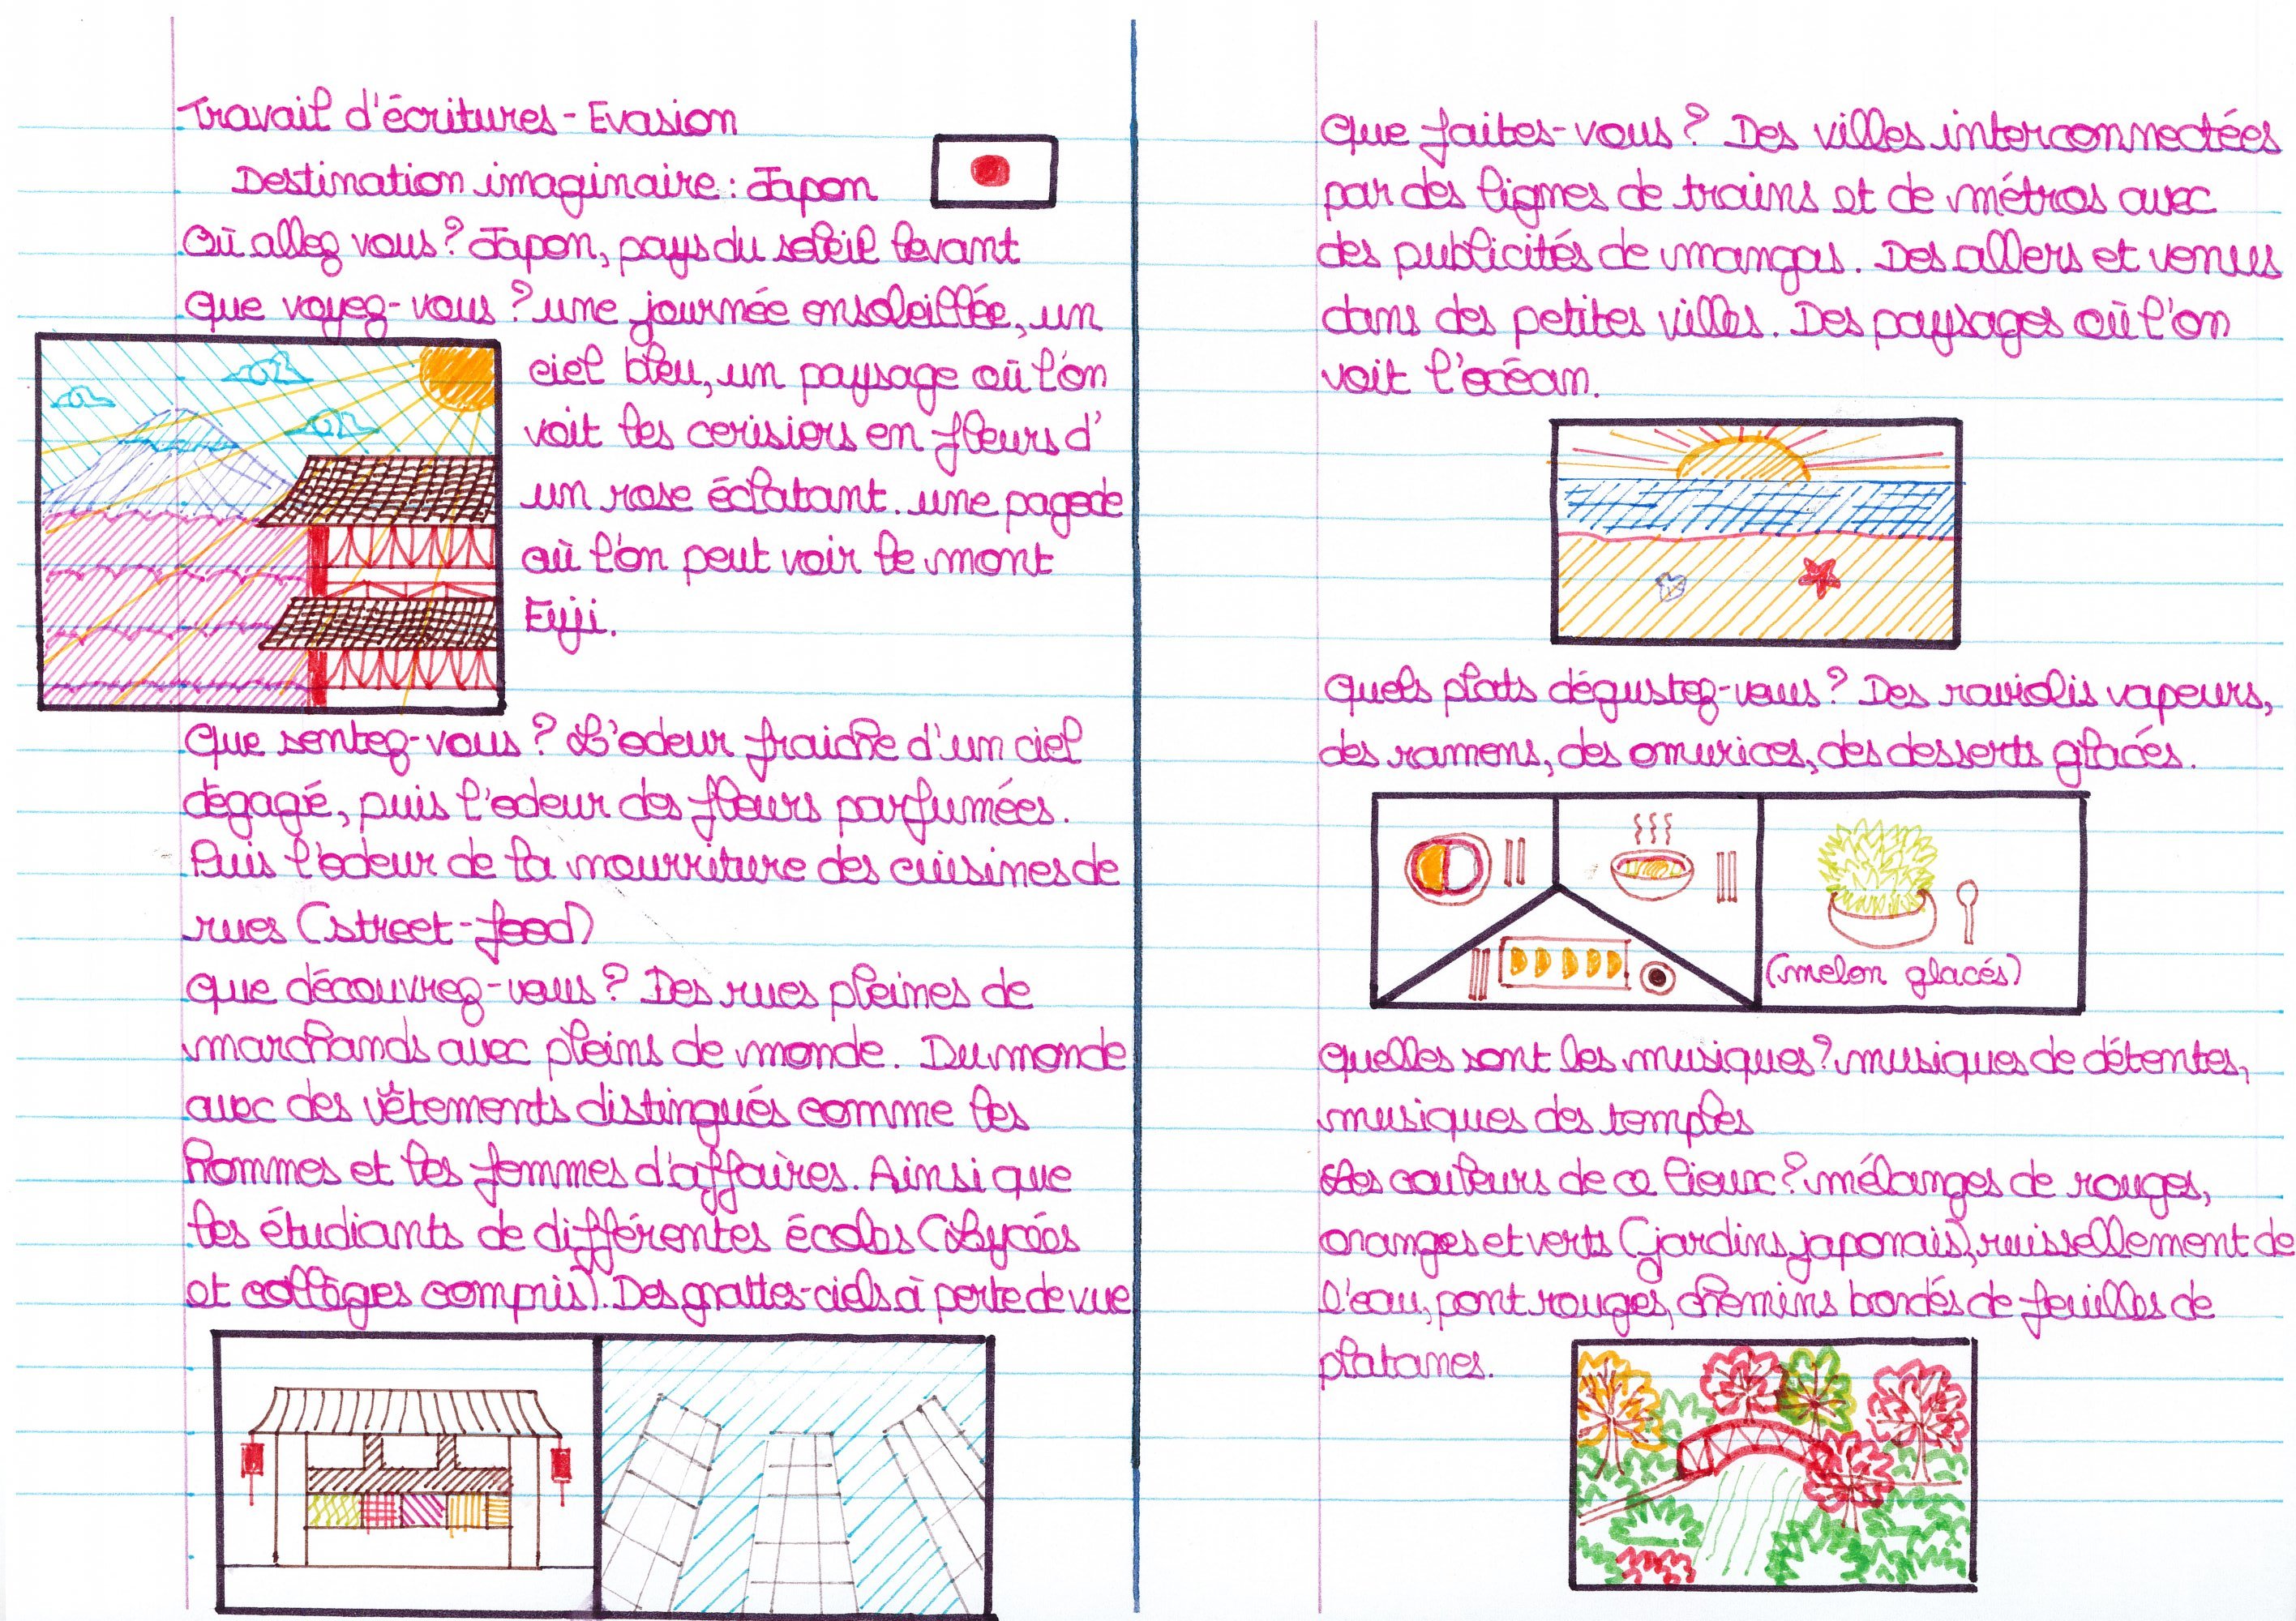 Travail d'écritures - Evasion
Destination imaginaire : Japon
Où allez vous ? Japon, pays du soleil levant
Que voyez-vous ? une journée ensoleillée, un
ciel bleu, un paysage où l'on
voit les cerisiers en fleurs d'
un rose éclatant. une pagode
où l'on peut voir le mont
Fuji.
Que sentez-vous ? L'odeur fraiche d'un ciel
dégagé, puis l'odeur des fleurs parfumées.
Puis l'odeur de la nourriture des cuisines de
rues (street-food)
Que découvrez-vous ? Des rues pleines de
marchands avec pleins de monde. Du monde
avec des vêtements distingués comme les
hommes et les femmes d'affaires. Ainsi que
les étudiants de différentes écoles (Lycées
et collèges compris). Des grattes-ciels à perte de vue
Que faites-vous ? Des villes interconnectées
par des lignes de trains et de métros avec
des publicités de mangas. Des allers et venues
dans des petites villes. Des paysages où l'on
voit l'océan.
Quels plats dégustez-vous ? Des raviolis vapeurs,
des ramens, des omurices, des desserts glacés.
(melon glacés)
Quelles sont les musiques ? musiques de détentes,
musiques des temples
Les couleurs de ce lieux ? mélanges de rouges,
oranges et verts (jardins japonais), ruissellement de
l'eau, pont rouges, chemins bordés de feuilles de
platanes.